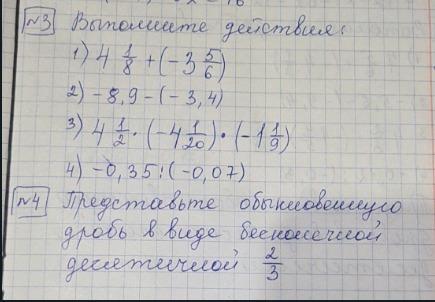 №3 Выполните действия:
1) 4 1/8 + (-3 5/6)
2) -8,9 - (-3,4)
3) 4 1/2 · (-4 1/20) · (-1 1/9)
4) -0,35 : (-0,07)
№4 Представьте обыкновенную
дробь в виде бесконечной
десятичной 2/3